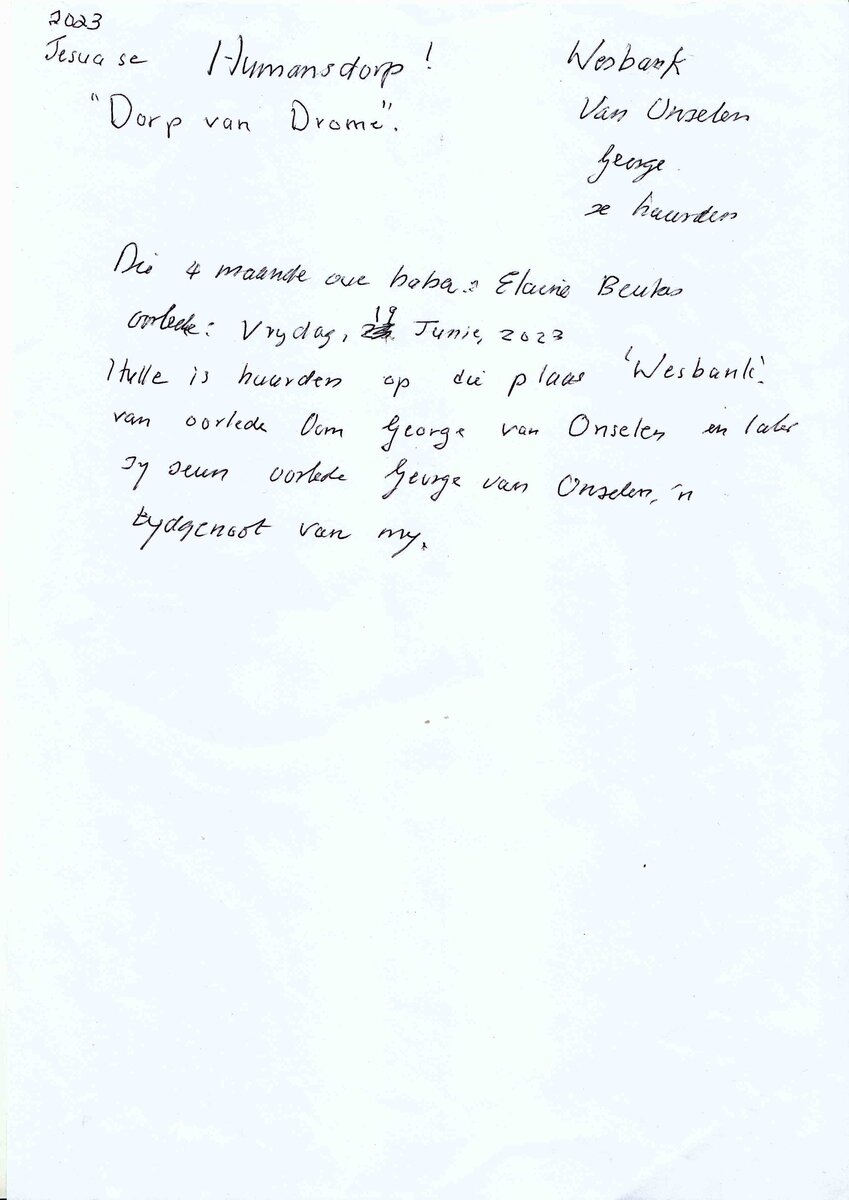 2023
Jesua se Humansdorp!
"Dorp van Drome".
Wesbank
Van Onselen
George
se huurders
Die 4 maande oue baba: Elaine Beukes
oorlede: Vrydag, 19 Junie, 2023
Hulle is huurders op die plaas 'Wesbank'.
van oorlede Oom George van Onselen en later
sy seun oorlede George van Onselen, 'n
tydgenoot van my.